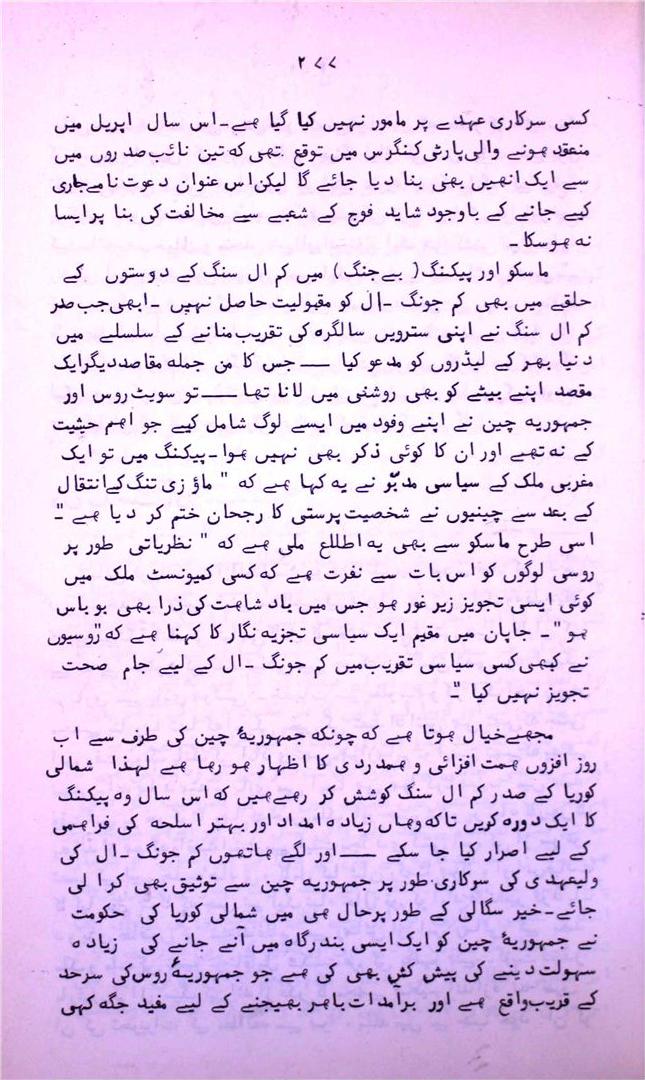 ۲۷۷
کسی سرکاری عہدے پر مامور نہیں کیا گیا ھے۔ اس سال اپریل میں
منعقد ھونے والی پارٹی کنگرس میں توقع تھی کہ تین نائب صدروں میں
سے ایک انھیں بھی بنا دیا جائے گا لیکن اس عنوان دعوت نامے جاری
کیے جانے کے باوجود شاید فوج کے شعبے سے مخالفت کی بنا پر ایسا
نہ ھوسکا۔
ماسکو اور پیکنگ ( بےجنگ ) میں کم ال سنگ کے دوستوں کے
حلقے میں بھی کم جونگ ۔ال کو مقبولیت حاصل نہیں ۔ ابھی جب صدر
کم ال سنگ نے اپنی سترویں سالگرہ کی تقریب منانے کے سلسلے میں
دنیا بھر کے لیڈروں کو مدعو کیا —— جس کا من جملہ مقاصد دیگر ایک
مقصد اپنے بیٹے کو بھی روشنی میں لانا تھا —— تو سویٹ روس اور
جمہوریہ چین نے اپنے وفود میں ایسے لوگ شامل کیے جو اھم حیثیت
کے نہ تھے اور ان کا کوئی ذکر بھی نہیں ھوا۔ پیکنگ میں تو ایک
مغربی ملک کے سیاسی مدبّر نے یہ کہا ھے کہ " ماؤ زی تنگ کے انتقال
کے بعد سے چینیوں نے شخصیت پرستی کا رجحان ختم کر دیا ھے "۔
اسی طرح ماسکو سے بھی یہ اطللع ملی ھے کہ " نظریاتی طور پر
روسی لوگوں کو اس بات سے نفرت ھے کہ کسی کمیونسٹ ملک میں
کوئی ایسی تجویز زیر غور ھو جس میں بادشاھت کی ذرا بھی بو باس
ھو "۔ جاپان میں مقیم ایک سیاسی تجزیہ نگار کا کہنا ھے کہ "روسیوں
نے کبھی کسی سیاسی تقریب میں کم جونگ ۔ال کے لیے جام صحت
تجویز نہیں کیا "۔
مجھے خیال ھوتا ھے کہ چونکہ جمہوریۂ چین کی طرف سے اب
روز افزوں ھمت افزائی و ھمدردی کا اظہار ھو رھا ھے لہذا شمالی
کوریا کے صدر کم ال سنگ کوشش کر رھے ھیں کہ اس سال وہ پیکنگ
کا ایک دورہ کریں تاکہ وھاں زیادہ امداد اور بہتر اسلحہ کی فراھمی
کے لیے اصرار کیا جا سکے —— اور لگے ھاتھوں کم جونگ ۔ال کی
ولیعہدی کی سرکاری طور پر جمہوریہ چین سے توثیق بھی کرا لی
جائے۔ خیر سگالی کے طور پر حال ھی میں شمالی کوریا کی حکومت
نے جمہوریۂ چین کو ایک ایسی بندرگاہ میں آنے جانے کی زیادہ
سہولت دینے کی پیش کش بھی کی ھے جو جمہوریۂ روس کی سرحد
کے قریب واقع ھے اور برآمدات باھر بھیجنے کے لیے مفید جگہ کہی